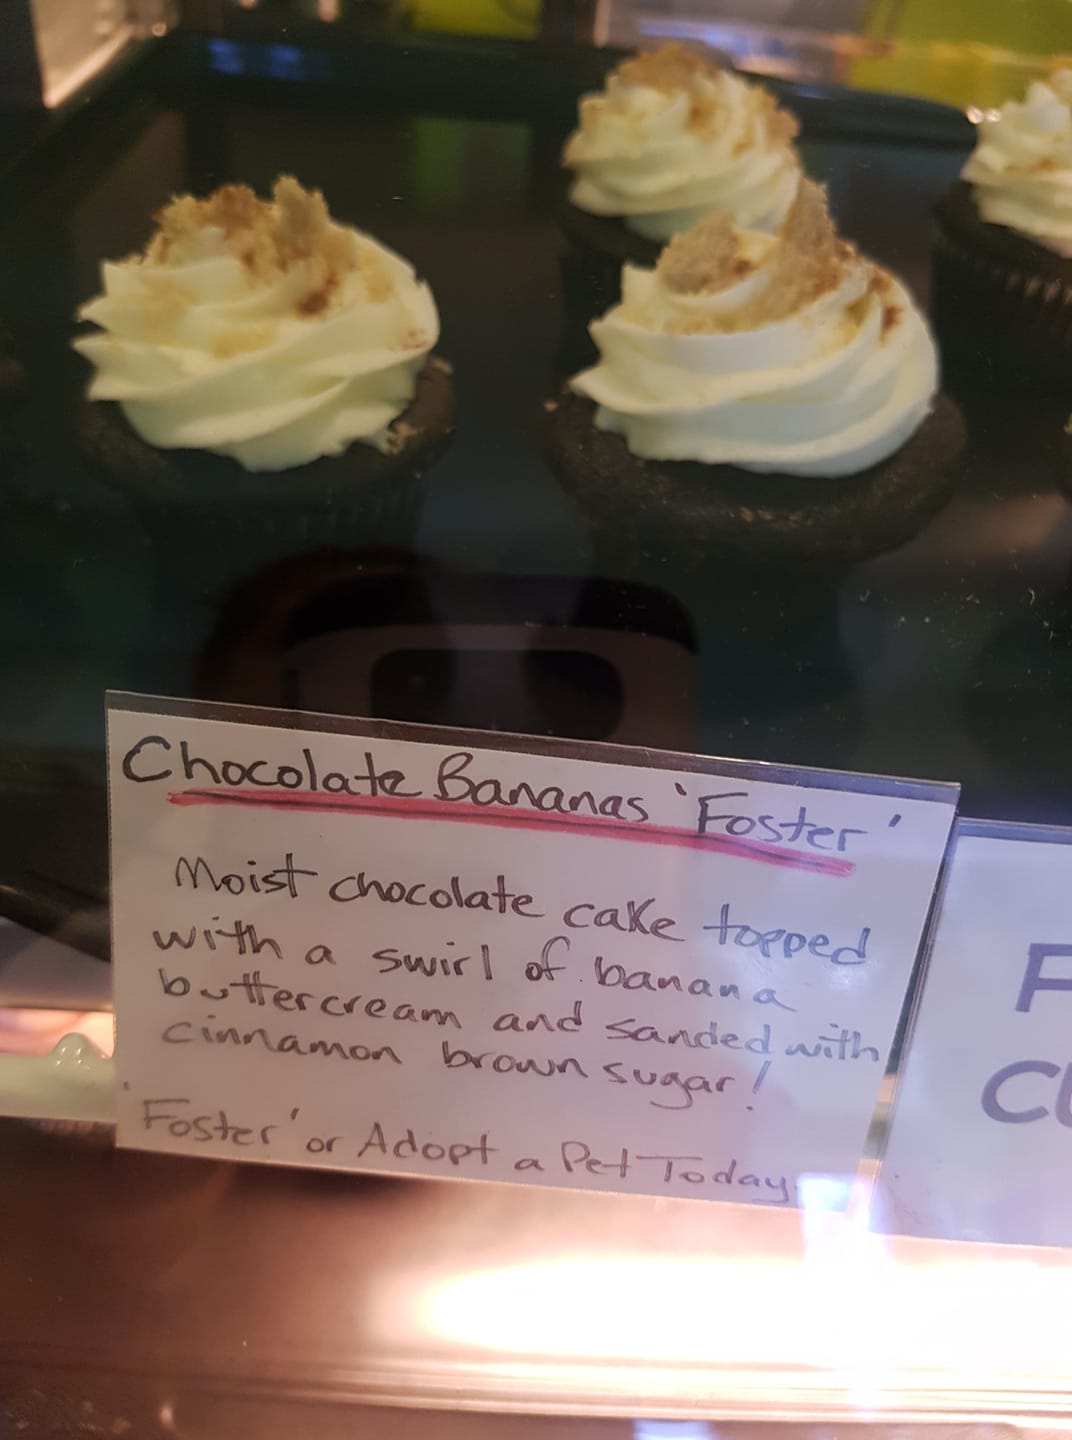 Chocolate Bananas 'Foster'
Moist chocolate cake topped
with a swirl of banana
buttercream and sanded with
cinnamon brown sugar!
'Foster' or Adopt a Pet Today.
F
CU